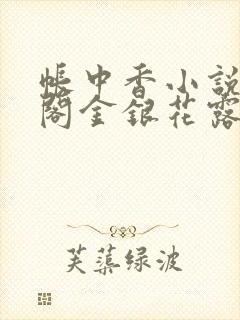 帳中香小說
閣金銀花露
芙蕖绿波